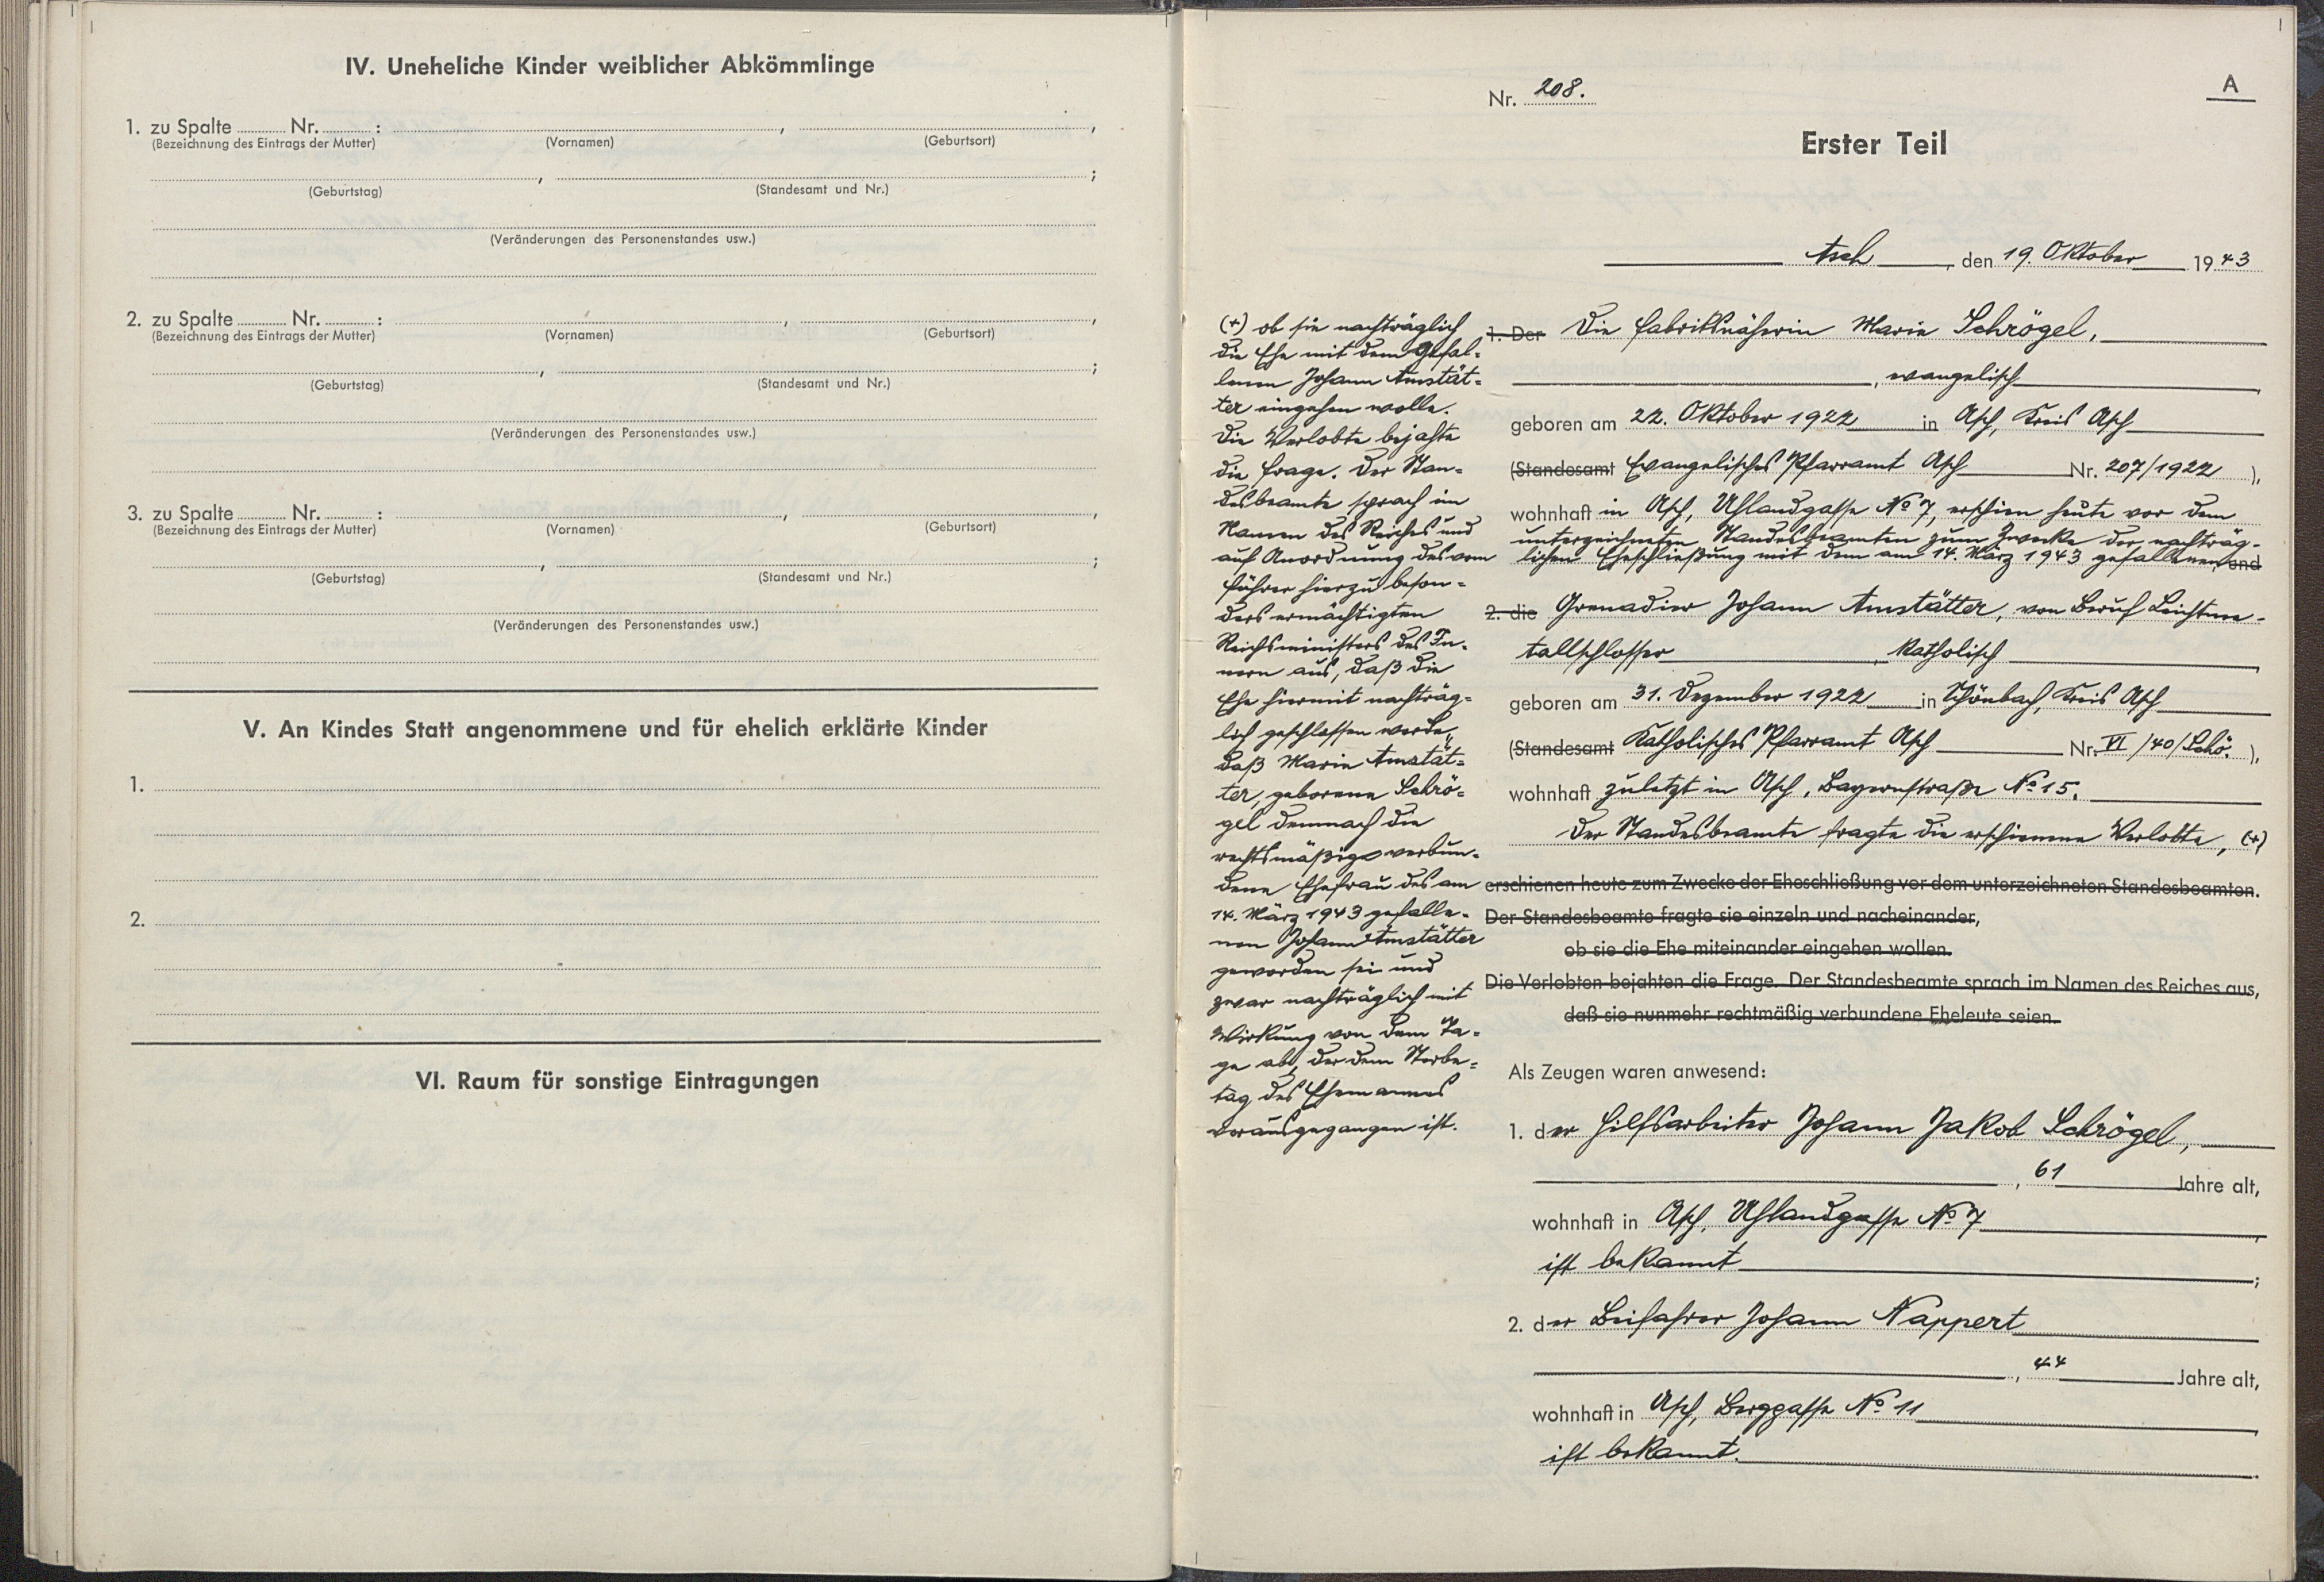 IV. Uneheliche Kinder weiblicher Abkömmlinge
1. zu Spalte ........ Nr. ........ : ........ , ........ ,
(Bezeichnung des Eintrags der Mutter) (Vornamen) (Geburtsort)
........ , ........ ;
(Geburtstag) (Standesamt und Nr.)
(Veränderungen des Personenstandes usw.)
2. zu Spalte ........ Nr. ........ : ........ , ........ ,
(Bezeichnung des Eintrags der Mutter) (Vornamen) (Geburtsort)
........ , ........ ;
(Geburtstag) (Standesamt und Nr.)
(Veränderungen des Personenstandes usw.)
3. zu Spalte ........ Nr. ........ : ........ , ........ ,
(Bezeichnung des Eintrags der Mutter) (Vornamen) (Geburtsort)
........ , ........ ;
(Geburtstag) (Standesamt und Nr.)
(Veränderungen des Personenstandes usw.)
V. An Kindes Statt angenommene und für ehelich erklärte Kinder
1.
2.
VI. Raum für sonstige Eintragungen
A
Nr. 208.
Erster Teil
Asch, den 19. Oktober 1943
(+) ob sie nachträglich
die Ehe mit dem gefal=
lenen Johann Amstät=
ter eingehen wolle.
Die Verlobte bejahte
die Frage. Der Stan=
desbeamte sprach im
Namen des Reiches und
auf Anordnung des vom
Führer hierzu beson=
ders ermächtigten
Reichsministers des In=
nern aus, daß die
Ehe hiermit nachträg=
lich geschlossen werde,
daß Marie Amstät=
ter, geborene Schrö=
gel demnach die
rechtmäßig verbun=
dene Ehefrau des am
14. März 1943 gefalle=
nen Johann Amstätter
geworden sei und
zwar nachträglich mit
Wirkung von dem Ta=
ge ab, der dem Sterbe=
tag des Ehemannes
vorausgegangen ist.
1. Der Die Fabriksnäherin Marie Schrögel,
, evangelisch
geboren am 22. Oktober 1922 in Asch, Kreis Asch
(Standesamt Evangelisches Pfarramt Asch Nr. 207/1922 ),
wohnhaft in Asch, Uhlandgasse No 7, erschien heute vor dem
unterzeichneten Standesbeamten zum Zwecke der nachträg-
lichen Eheschließung mit dem am 14. März 1943 gefallenen, und
2. die Grenadier Johann Amstätter, von Beruf Leichtme-
tallschlosser, katholisch
geboren am 31. Dezember 1922 in Schönbach, Kreis Asch
(Standesamt Katholisches Pfarramt Asch Nr. VI/40/Schö. ),
wohnhaft zuletzt in Asch, Bayernstraße No 15.
Der Standesbeamte fragte die erschienene Verlobte, (+)
erschienen heute zum Zwecke der Eheschließung vor dem unterzeichneten Standesbeamten.
Der Standesbeamte fragte sie einzeln und nacheinander,
ob sie die Ehe miteinander eingehen wollen.
Die Verlobten bejahten die Frage. Der Standesbeamte sprach im Namen des Reiches aus,
daß sie nunmehr rechtmäßig verbundene Eheleute seien.
Als Zeugen waren anwesend:
1. der Hilfsarbeiter Johann Jakob Schrögel,
, 61 Jahre alt,
wohnhaft in Asch, Uhlandgasse No 7
ist bekannt ;
2. der Beifahrer Johann Nappert
, 44 Jahre alt,
wohnhaft in Asch, Berggasse No 11
ist bekannt.